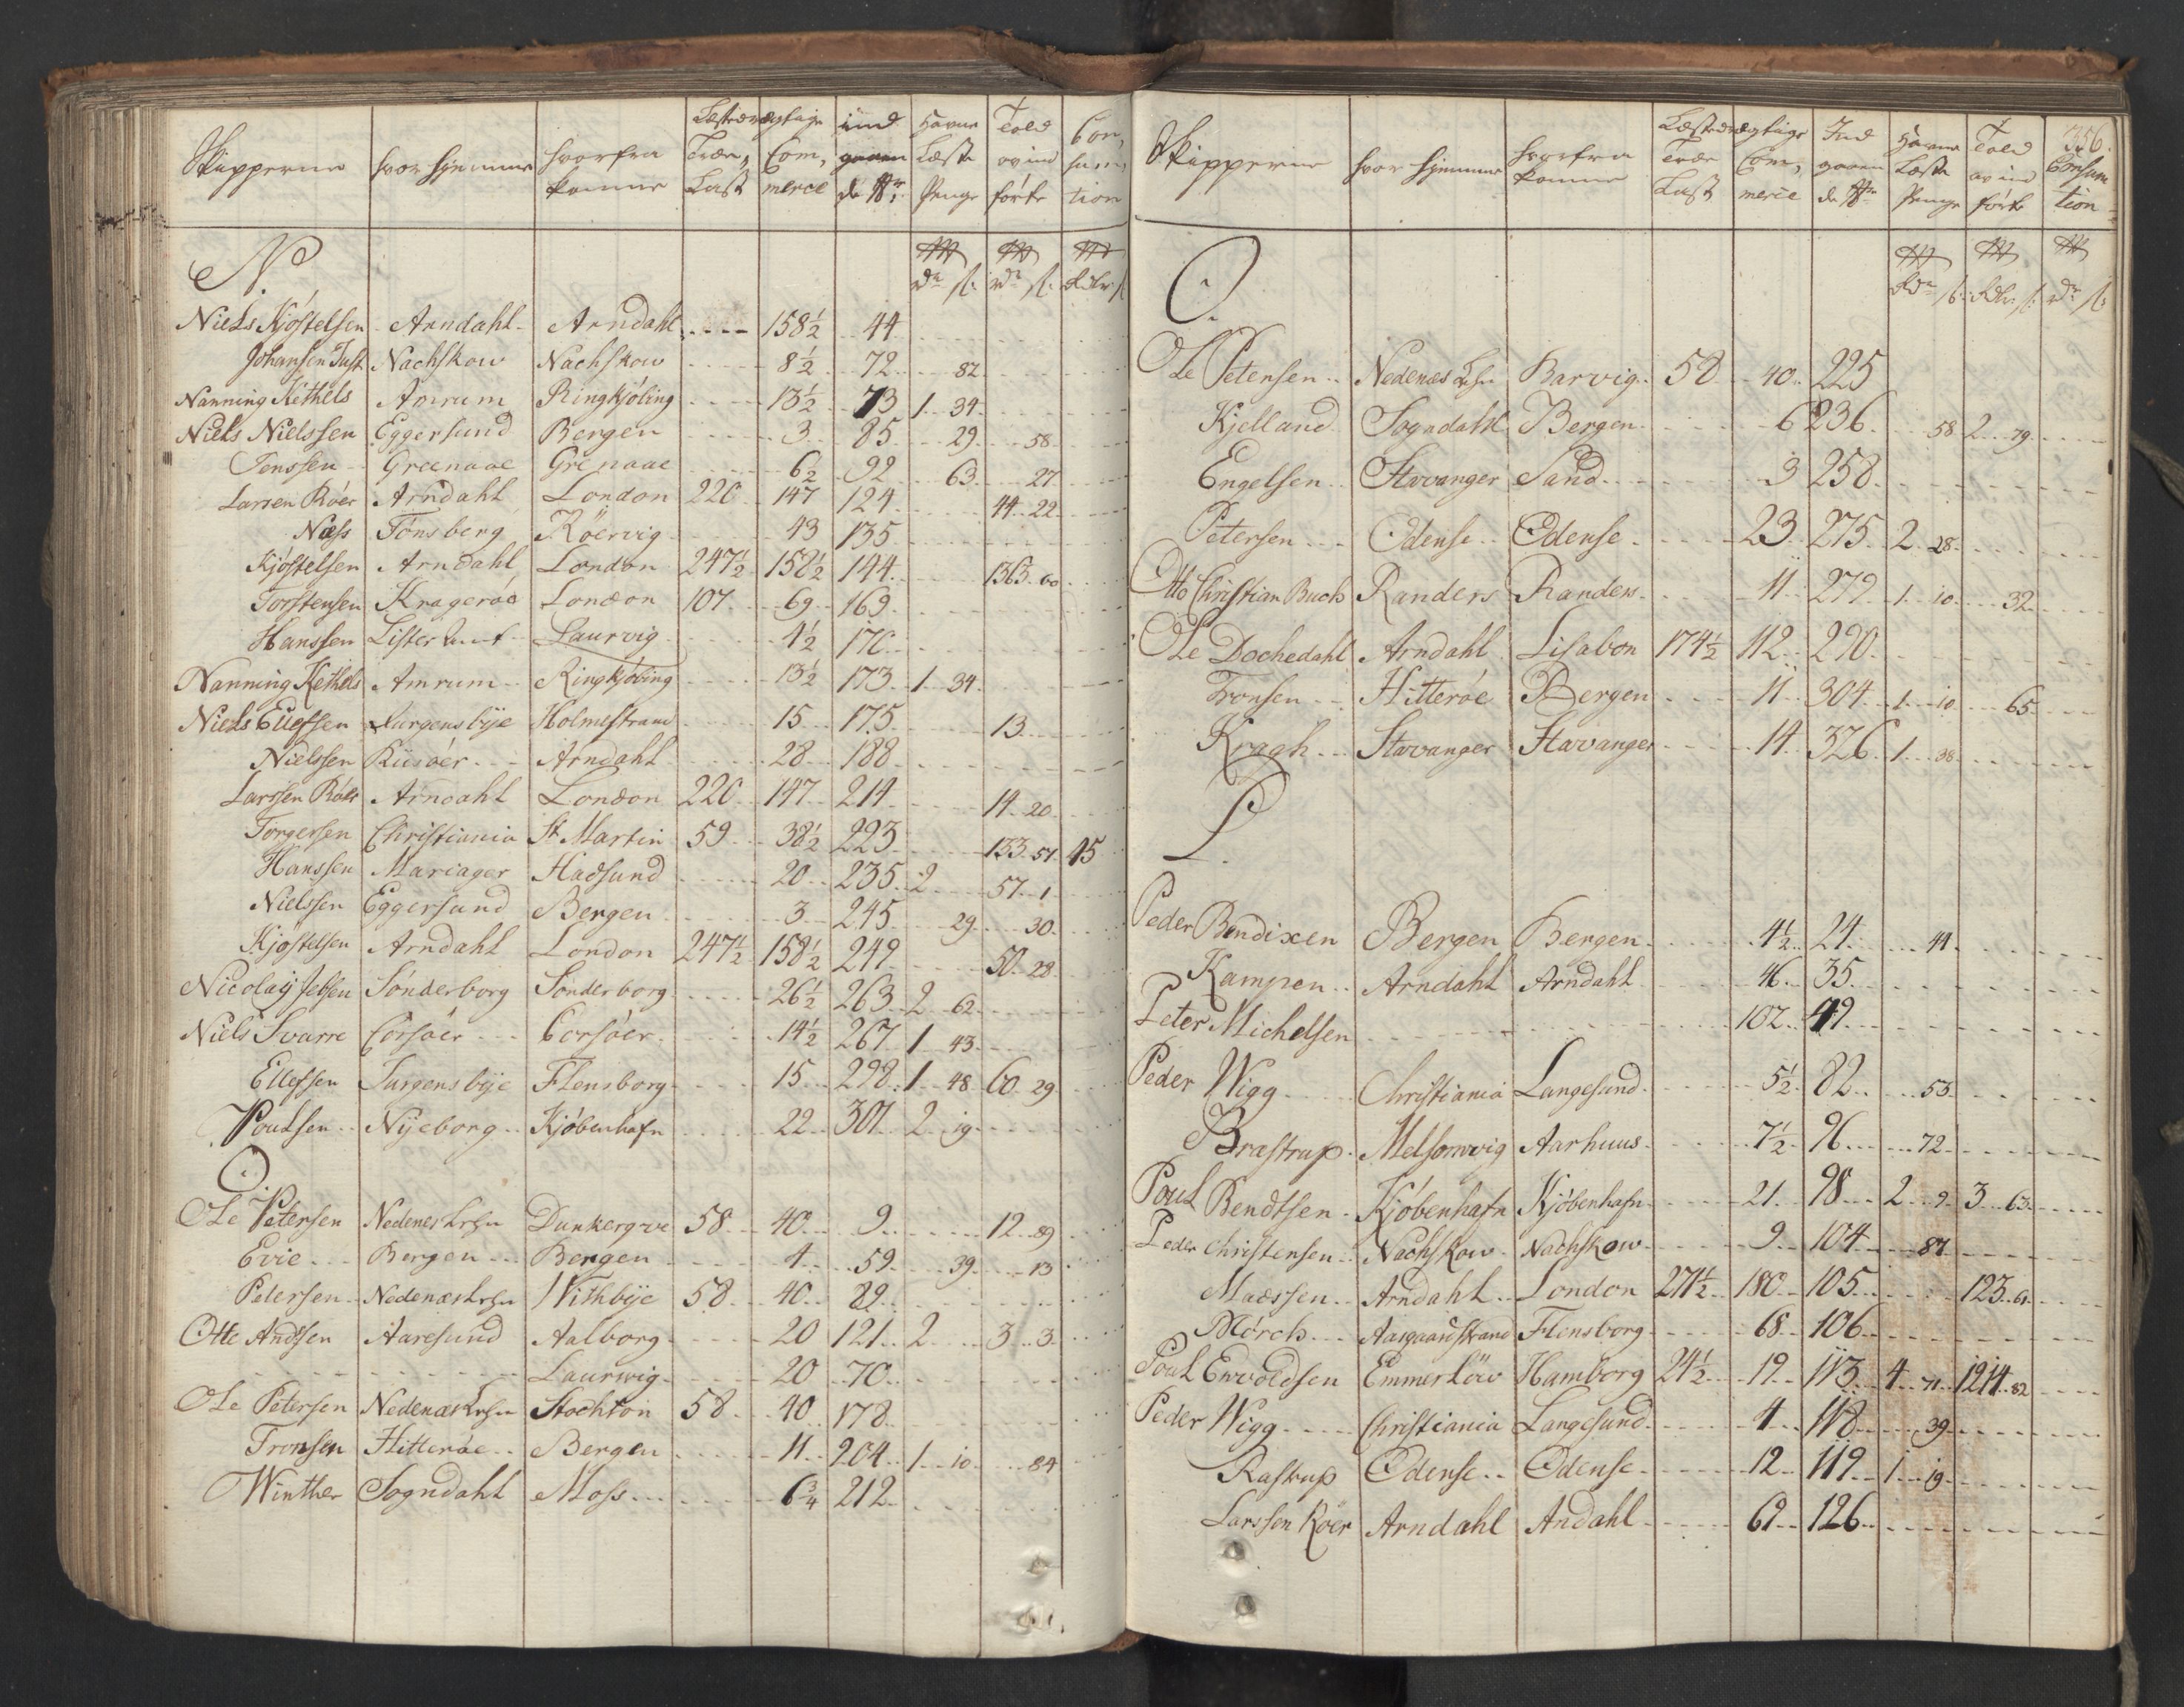 Skipperne hvor hjemme hvorfra komne Læstedrægtige Træe, Last Com, merce ind gaaen de Havne Læste Penge Told av ind førte Con, sum, tion
N.
Niels Kjøstelsen Arndahl Arndahl 158½ 44
Johansen Just Nachskow Nachskow 8½ 72 82
Nanning Kethels Amrum Ringkjöbing 13½ 73 1 34
Niels Nielssen Eggersund Bergen 3 85 29 58
Jenssen Greenaae Grenaae 6½ 92 63 27
Larsen Röer Arndahl London 220 147 124 44 22
Næss Tønsberg Röervig 43 135
Kjöstelsen Arndahl London 247½ 158½ 144 1363 60
Torstensen Krageröe London 107 69 169
Hanssen Lister Amt Laurvig 4½ 170
Nanning Kethels Amrum Ringkjöbing 13½ 173 1 34
Niels Ellefsen Jurgensbije Holmestrand 15 175 13
Nielssen Riisöer Arndahl 28 188
Larssen Röer Arndahl London 220 147 214 14 20
Torgersen Christiania St Martin 59 38½ 223 133 57 15
Hanssen Mariager Hadsund 20 235 2 57 1
Nielssen Eggersund Bergen 3 245 29 30
Kjøstelsen Arndahl London 247½ 158½ 249 50 28
Nicolaij Jebsen Sönderborg Sönderborg 26½ 263 2 62
Niels Svarre Corsöer Corsöer 14½ 267 1 43
Ellefsen Jurgensbije Flensborg 15 298 1 48 60 29
Poulsen Nijeborg Kjöbenhafn 22 301 2 19
O.
Ole Petersen Nedenes Lehn Dunkerqve 58 40 9 12 89
Evie Bergen Bergen 4 59 39 13
Petersen Nedenæs Lehn Withbije 58 40 89
Otte Andsen Aaresund Aalborg 20 121 2 3 3
Laurwig 20 70
Ole Petersen Nedenæs Lehn Stockton 58 40 178
Tronsen Hitteröe Bergen 11 204 1 10 84
Winther Sogndahl Moss 6¾ 212
356.
Skipperne hvor hjemme hvorfra komne Læstedrægtige Træe Last Com, merce Ind gaaen de Havne Læste Penge Told av ind førte Consum tion
O.
Ole Petersen Nedenes Lehn Barvig 58 40 225
Kjelland Sogndahl Bergen 6 236 58 2 79
Engelsen Stavanger Sand 3 258
Petersen Odense Odense 23 275 2 28
Otto Christian Buch Randers Randers 11 279 1 10 32
Ole Dochedahl Arndahl Lisabon 174½ 112 290
Tronsen Hitteröe Bergen 11 304 1 10 65
Kragh Stavanger Stavanger 14 326 1 38
P.
Peder Bendixen Bergen Bergen 4½ 24 44
Kampen Arndahl Arndahl 46 35
Peter Michelsen 102 49
Peder Wigg Christiania Langesund 5½ 82 53
Brastrup Melsomvig Aarhuus 7½ 96 72
Poul Bendtsen Kjöbenhafn Kjöbenhafn 21 98 2 9 3 63
Peder Christensen Nachskow Nachskow 9 104 87
Madssen Arndahl London 271½ 180 105 123 61
Mörch Aasgaardstrand Flensborg 68 106
Poul Ewoldsen Emmerlöw Hamborg 24½ 19 113 4 71 1214 82
Peder Wigg Christiania Langesund 4 118 39
Rastrup Odense Odense 12 119 1 19
Larssen Röer Arndahl Andahl 69 126